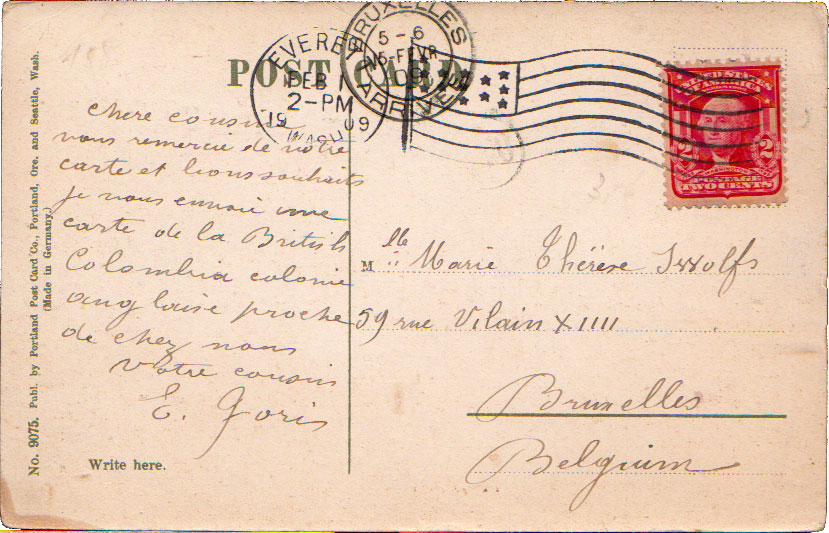 POST CARD
EVERETT
FEB 1
2-PM
1909
WASH
BRUXELLES
5-6
15-FEVR
09
ARRIVEE
UNITED STATES
OF AMERICA
2 2
POSTAGE
TWO CENTS
chère cousine
vous remercie de votre
carte et bons souhaits
je vous envoie une
carte de la British
Colombia colonie
anglaise proche
de chez nous
votre cousin
E. Joris
Write here.
Mlle Marie Thérèse
59 rue Vilain XIIII
Bruxelles
Belgium
No. 9075. Publ. by Portland Post Card Co., Portland, Ore. and Seattle, Wash.
(Made in Germany.)